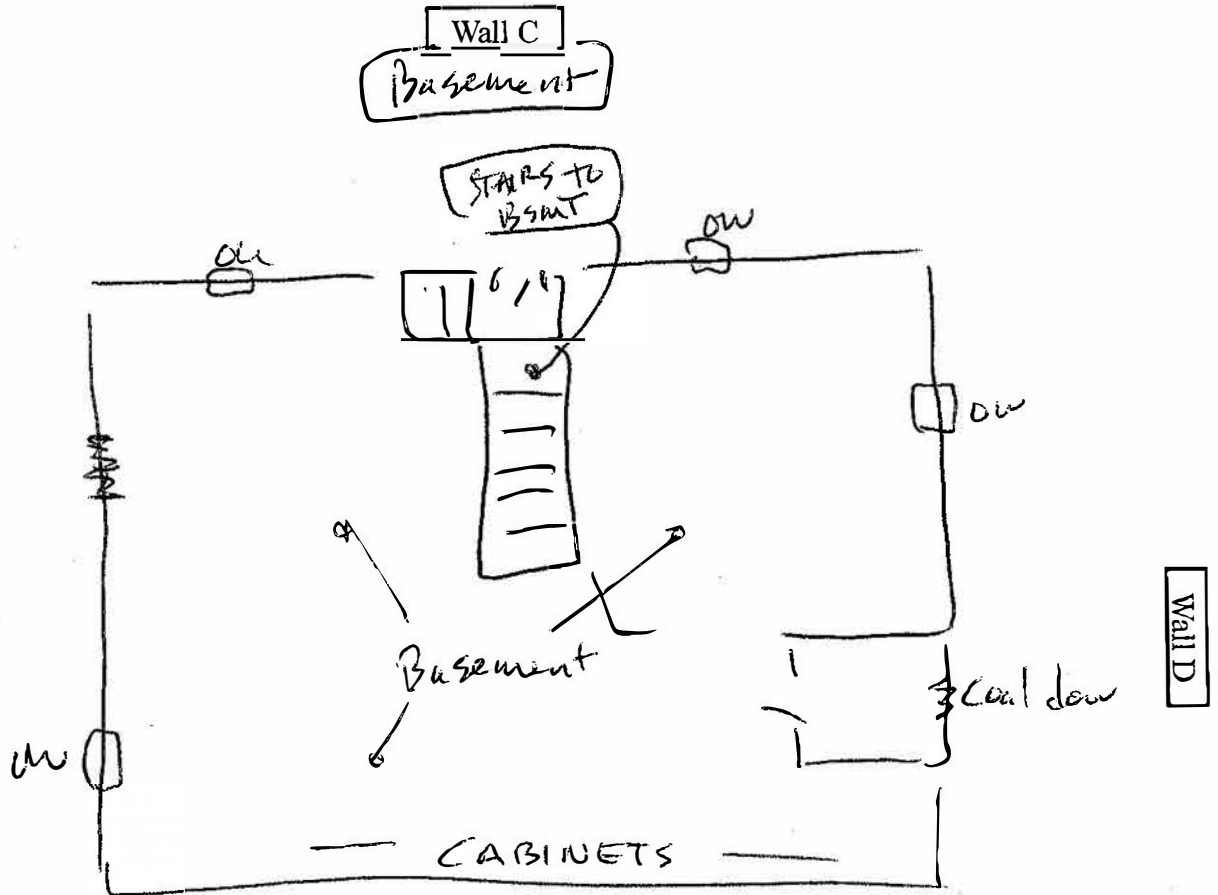 Wall C
Basement
STAIRS to
BsmT
OW
OW
OW
Wall D
Basement
Coal door
OW
CABINETS